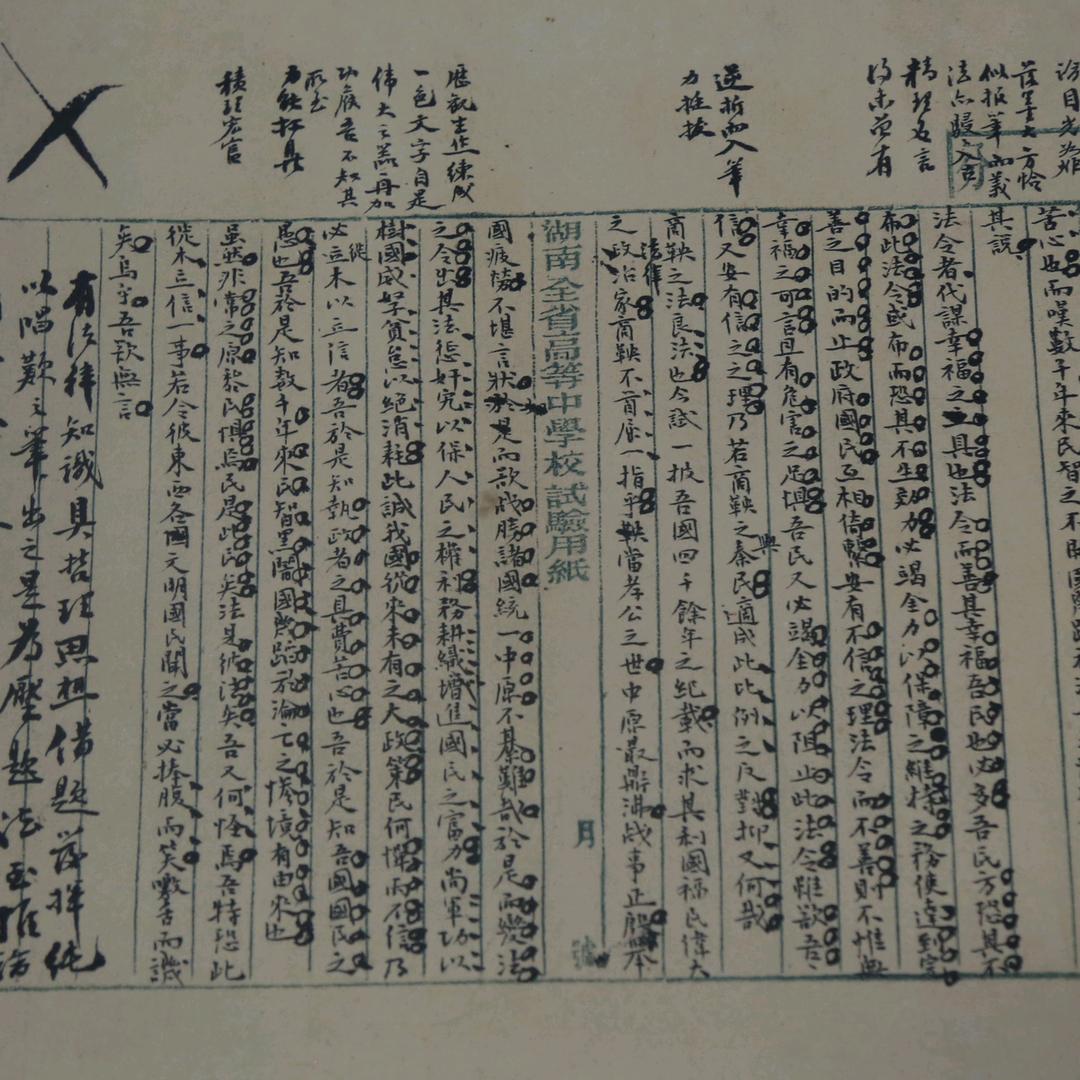 苦心也而嘆數千年來民智之不開國
其說
法令者代謀幸福之具也法令而善其幸福吾民也必多吾民方恐其不
布此法令或布而恐其不生效力必竭全力以保障之維持之務使達到完
善之目的而止政府國民互相倚繫安有不信之理法令而不善則不惟無
幸福之可言且有危害之足懼吾民又必竭全力以阻止此法令雖欲吾
信又安有信之之理乃若商鞅之與秦民適成此比例之反對抑又何哉
商鞅之法良法也今試一披吾國四千餘年之紀載而求其利國福民偉大
之政治家商鞅不首屈一指乎鞅當孝公之世中原鼎沸戰事正殷舉
法律
湖南全省高等中學校試驗用紙
月
號
國疲勞不堪言狀於是而欲戰勝諸國統一中原不綦難哉於是而變法
之令出其法懲奸宄以保人民之權利務耕織以增進國民之富力尚軍功以
樹國威孥貧怠以絕消耗此誠我國從來未有之大政策民何憚而不信乃
必徙木以立信者吾於是知執政者之具費苦心也吾於是知吾國國民之
愚也吾於是知數千年來民智黑闇國幾蹈於淪亡之慘境有由來也
雖然非常之原黎民懼焉民是此民矣法是彼法矣吾又何怪焉吾特恐此
徙木立信一事若令彼東西各國文明國民聞之當必捧腹而笑噭舌而譏
矣烏乎吾欲無言
精理名言
得未曾有
逆折而入筆
力挺拔
歷觀生作練成
一色文字自是
偉大之器再加
功候吾不知其
所至
力能扛鼎
積理宏富
有法律知識具哲理思想借題發揮純
以唱歎之筆出之是為壓題法至推論